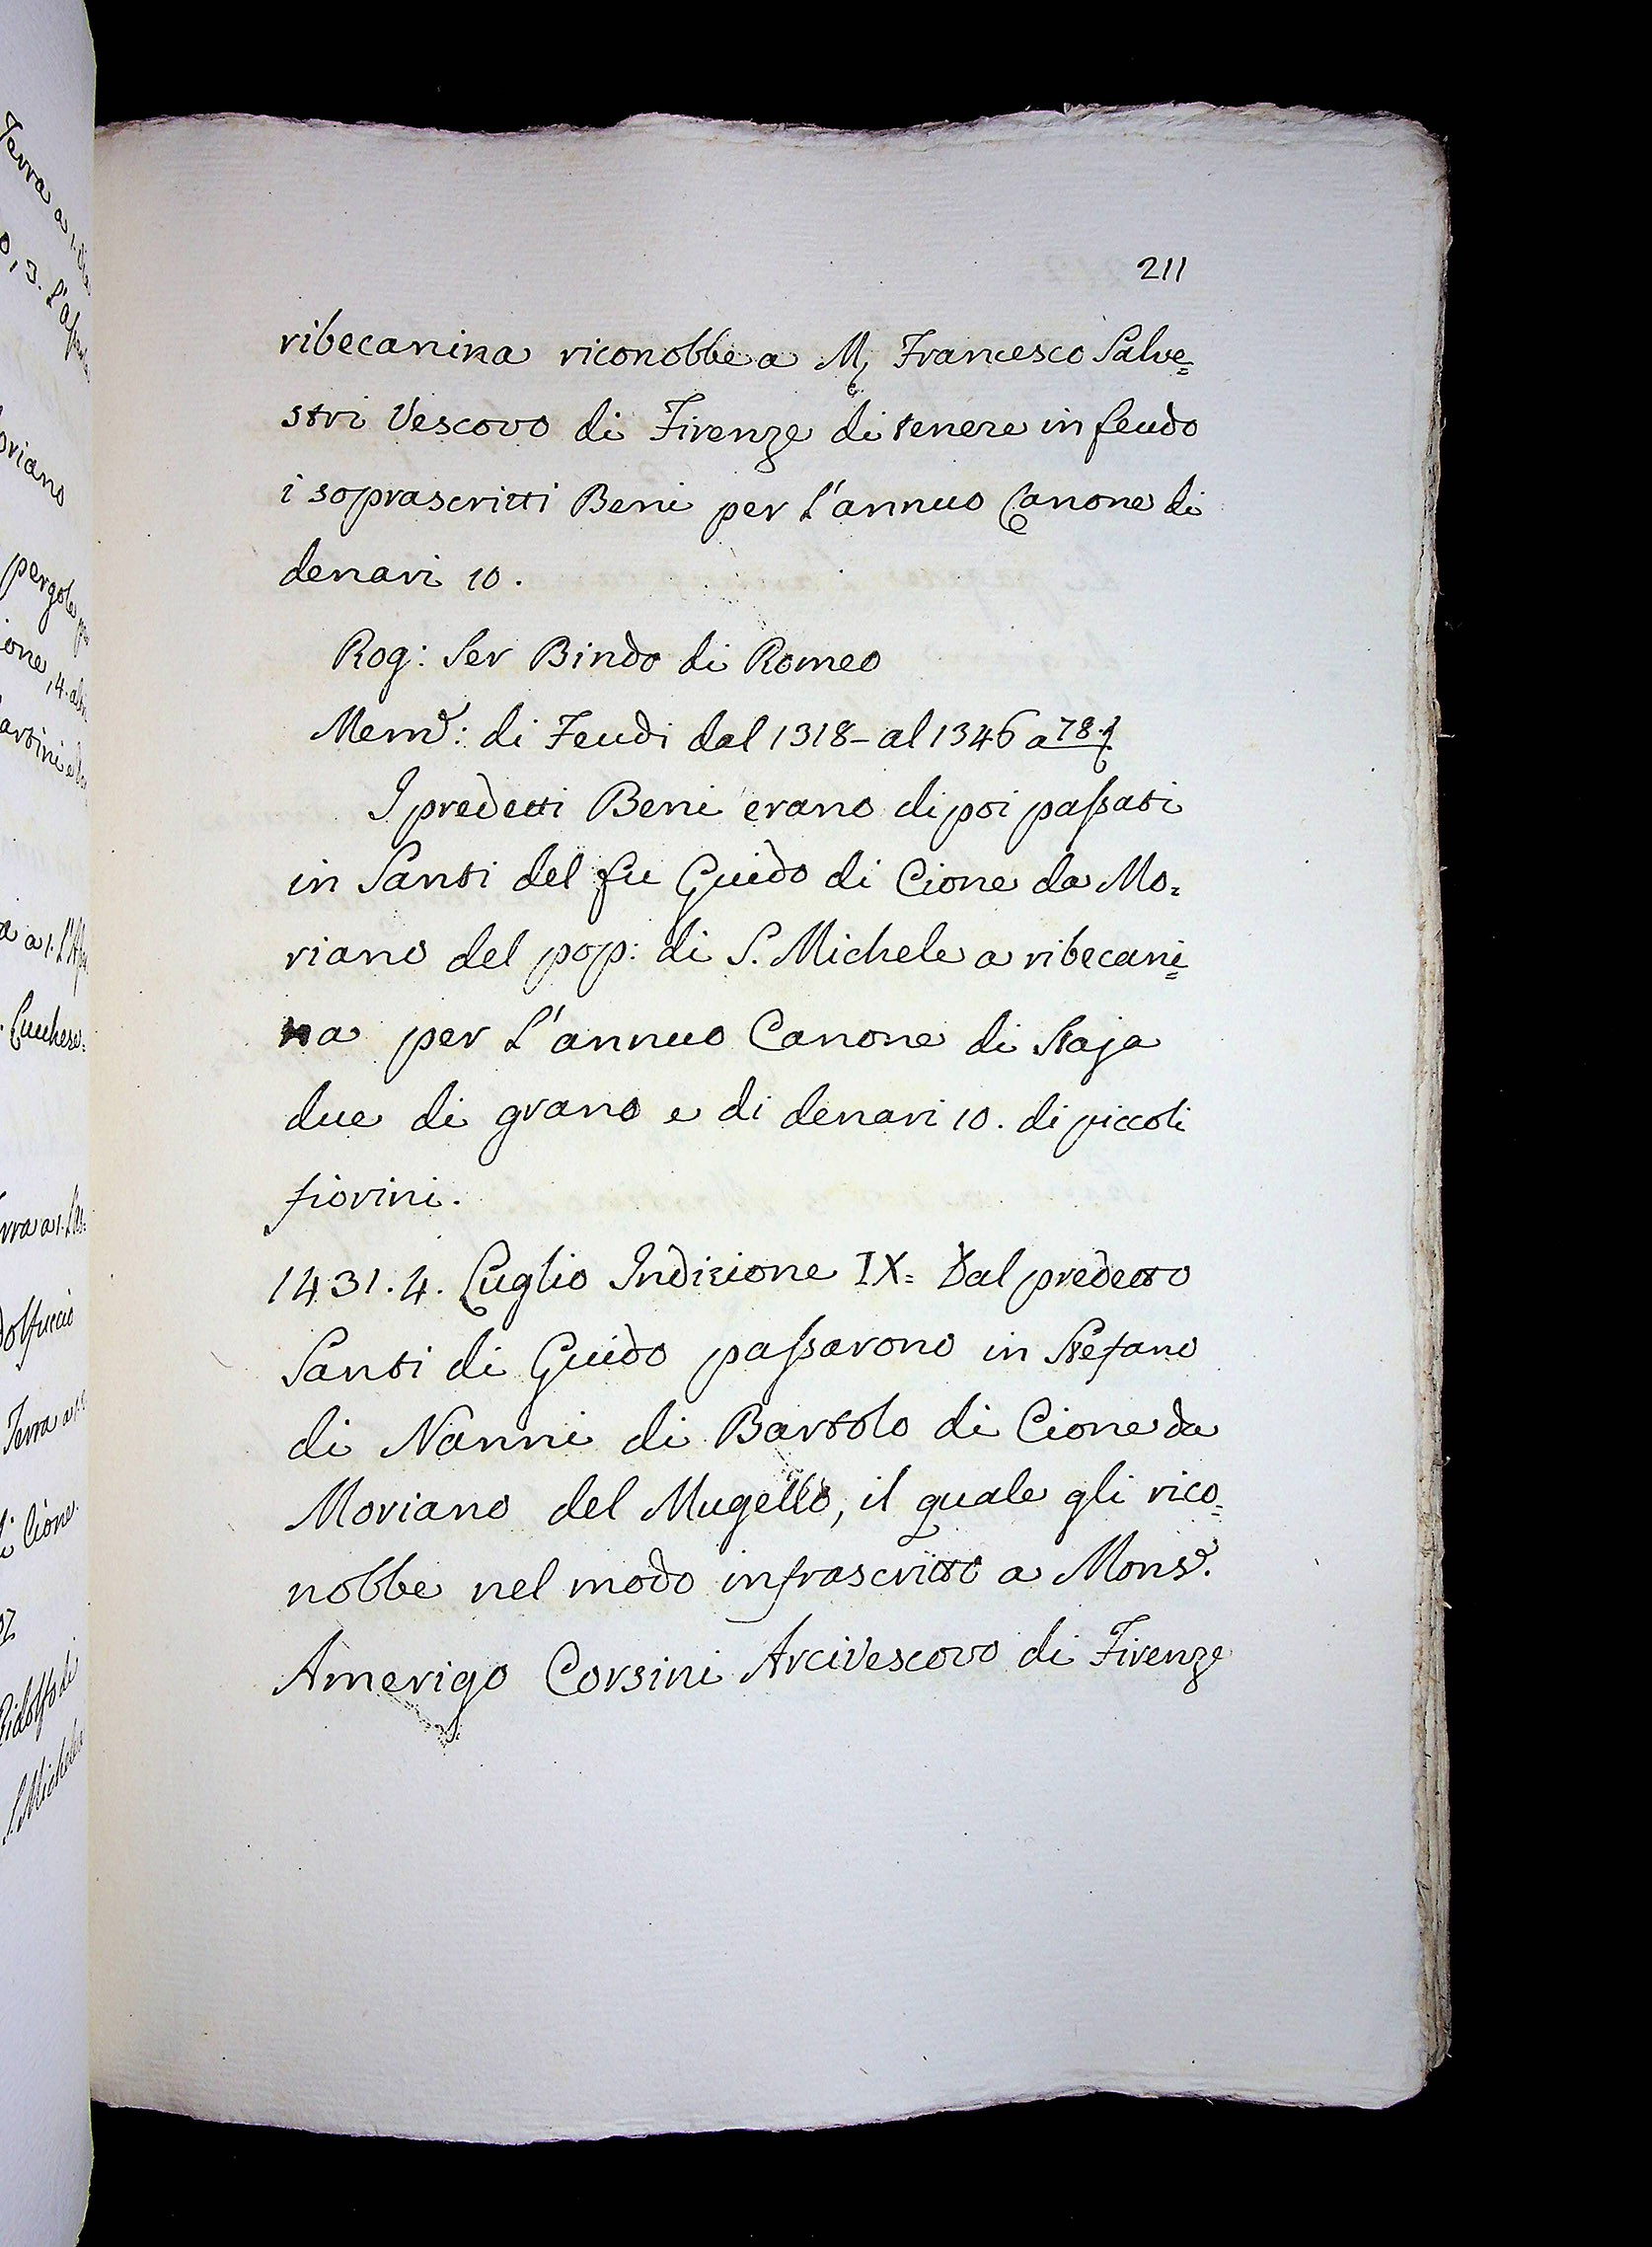 211
ribecanina riconobbe a M, Francesco Salve=
stri Vescovo di Firenze di tenere in feudo
i soprascritti Beni per l'annuo Canone di
denari 10.
Rog: Ser Bindo di Romeo
Mem.e: di Feudi dal 1318- al 1346 a 78.
I predetti Beni erano di poi passati
in Santi del fu Guido di Cione da Mo=
riano del pop: di S. Michele a ribecani=
na per l'annuo Canone di Staja
due di grano e di denari 10. di piccoli
fiorini.
1431. 4. Luglio Indizione IX= Dal predetto
Santi di Guido passarono in Stefano
di Nanni di Bartolo di Cione da
Moriano del Mugello, il quale gli rico=
nobbe nel modo infrascritto a Mons.e
Amerigo Corsini Arcivescovo di Firenze
Terra a 1. Via
0, 3. L'
oriano
pergole
ione, 4.
artini
a a 1. L'
Lucchese=
rra a 1.
dolfuccio
Terra a
di Cione
Ridolfo di
S. Michele